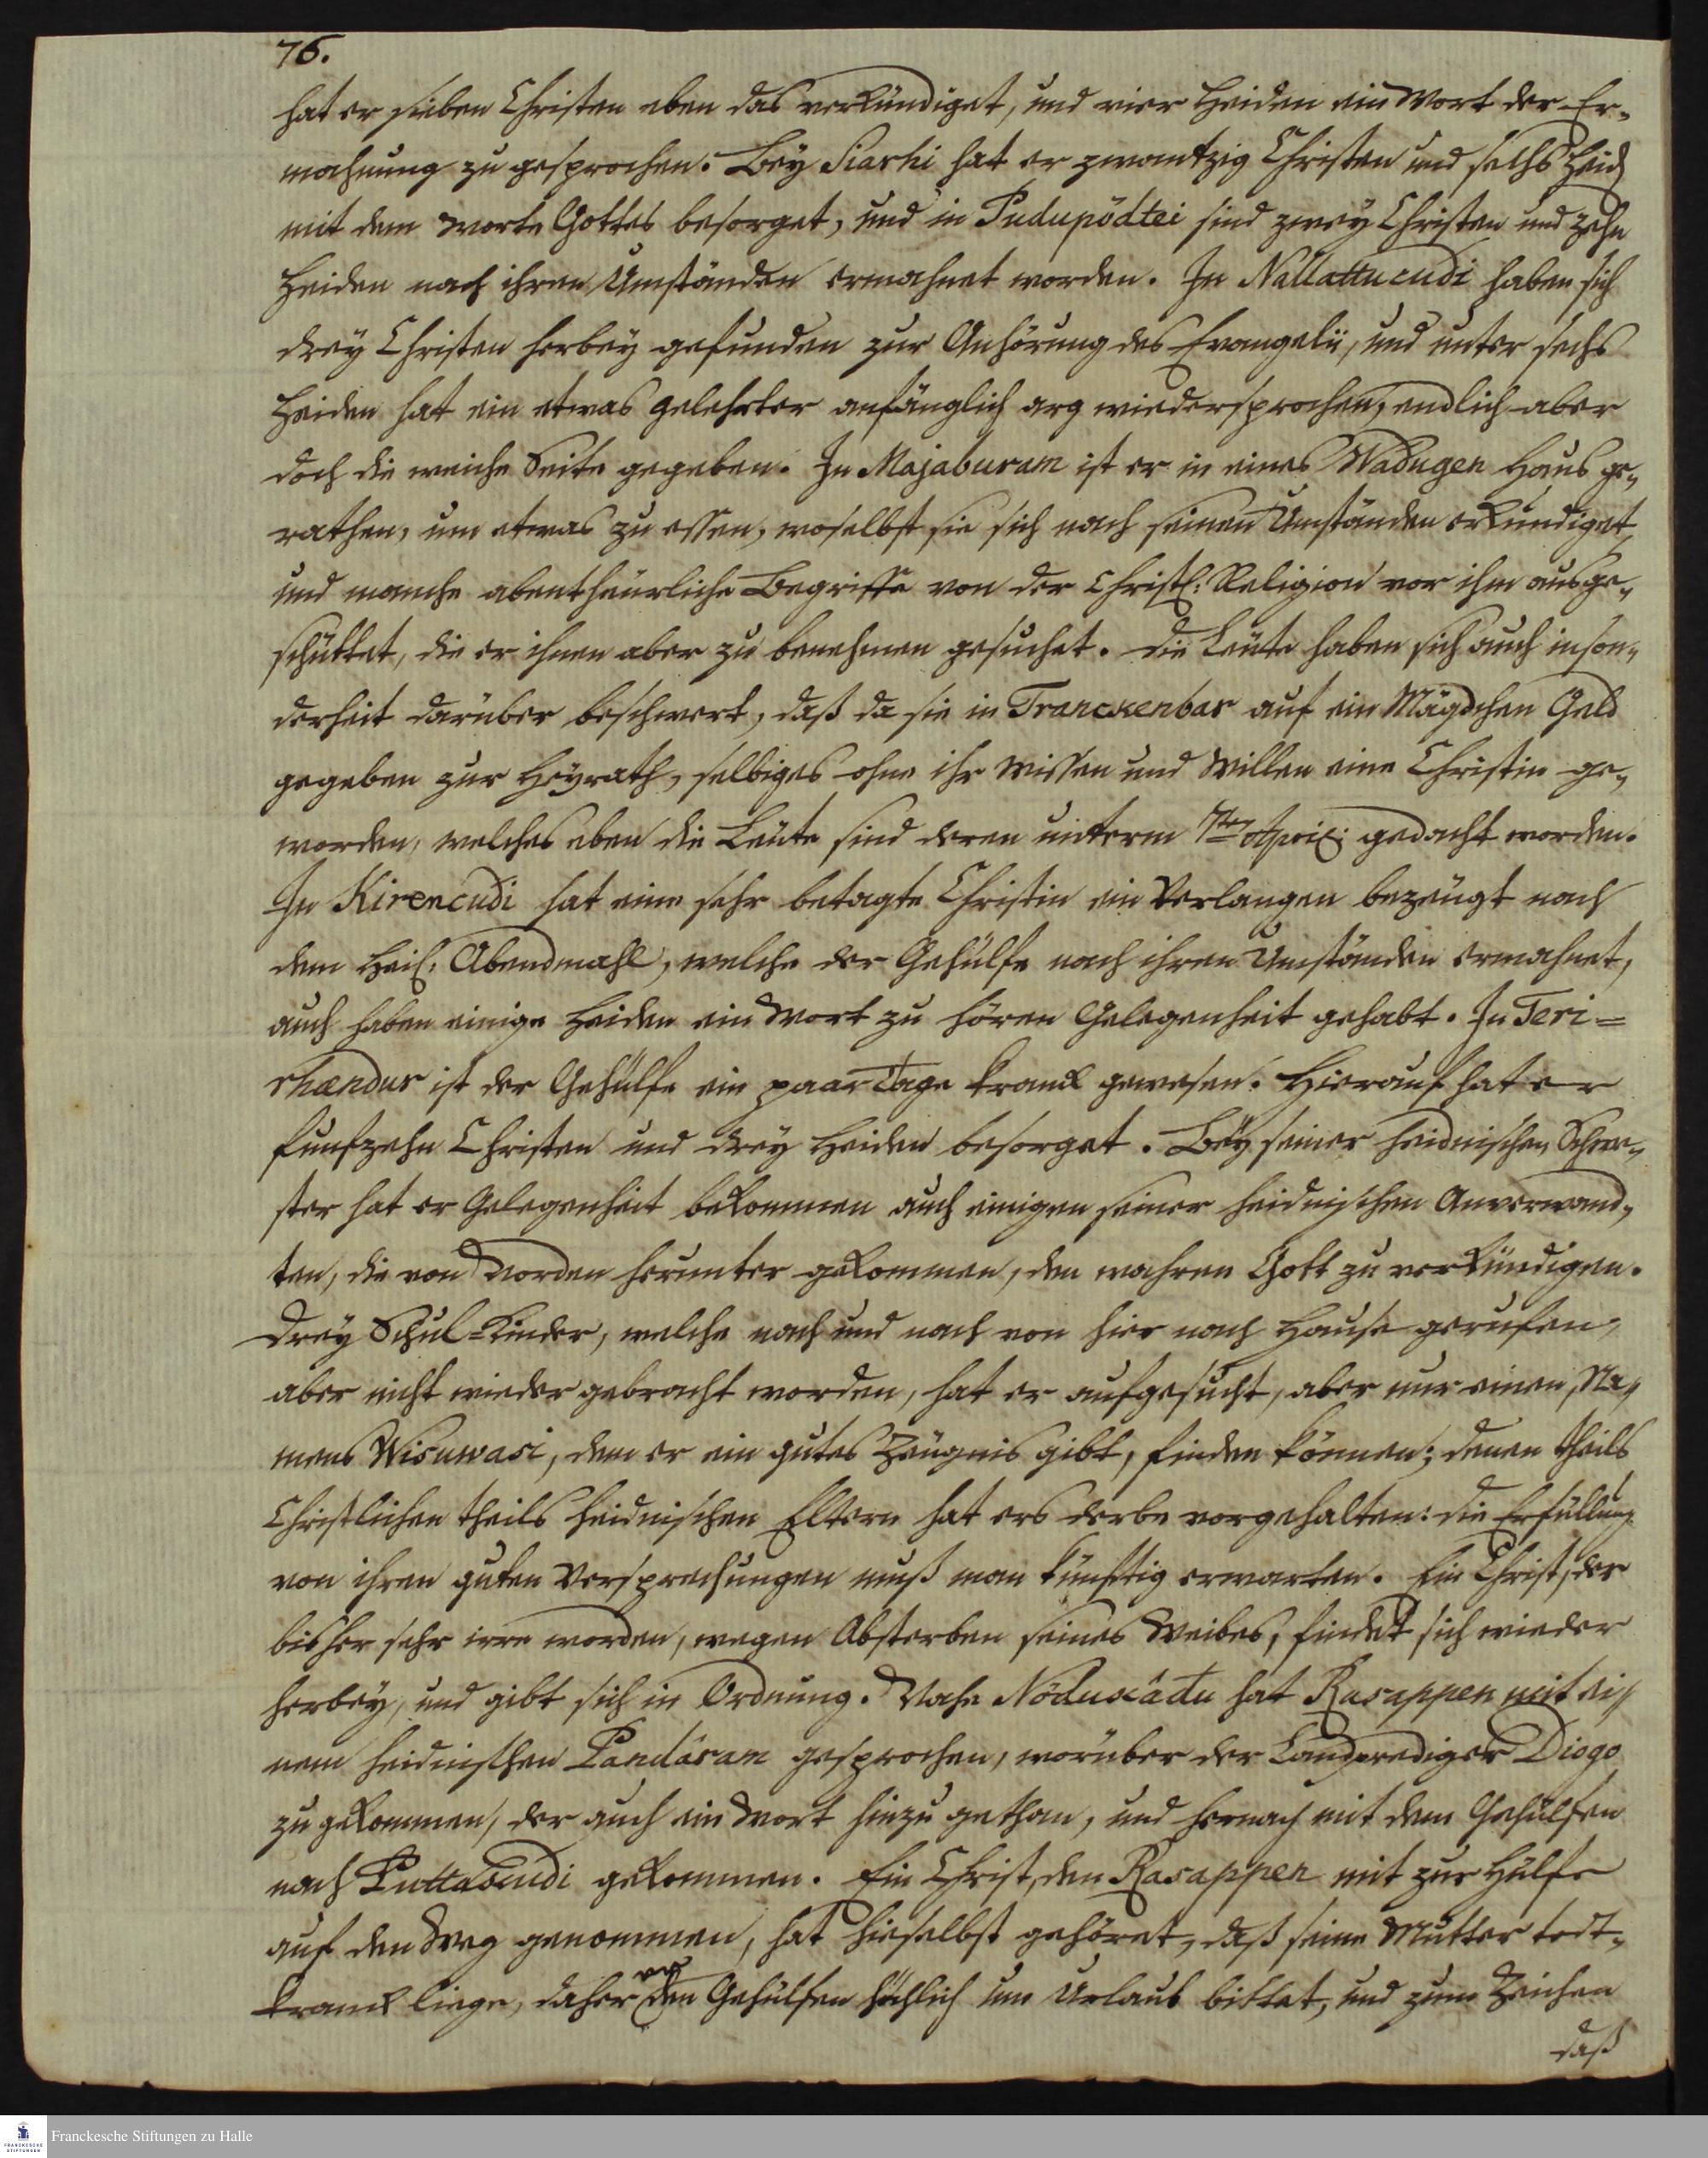 76.
hat er sieben Christen eben das verkündiget, und vier Heiden ein Wort der Er-
mahnung zu gesprochen. Bey Siarhi hat er zwantzig Christen und sechs Heid
mit dem Worte Gottes besorget, und in Pudupödtei sind zwey Christen und zehn
Heiden nach ihren Umständen ermahnet worden. In Nallattucudi haben sich
drey Christen herbey gefunden zur Anhörung des Evangelii, und unter sechs
Heiden hat ein etwas gelehrter anfänglich arg wiedersprochen, endlich aber
doch die weiche Seite gegeben. In Majaburam ist er in eines Wadugen Haus ge-
rathen, um etwas zu essen, woselbst sie sich nach seinen Umständen erkundiget,
und manche abentheürliche Begriffe von der Christl: Religion vor ihm ausge-
schüttet, die er ihnen aber zu benehmen gesuchet. Die Leüte haben sich auch inson-
derheit darüber beschwert, daß da sie in Tranckenbar auf ein Mägdchen Geld
gegeben zur Heyrath, selbiges ohne ihr Wissen und Willen eine Christin ge-
worden, welches eben die Leüte sind deren unterm 7ten April: gedacht worden.
In Kirencudi hat eine sehr betagte Christin ein Verlangen bezeugt nach
dem Heil: Abendmahl, welche der Gehülfe nach ihren Umständen ermahnet,
auch haben einige Heiden ein Wort zu hören Gelegenheit gehabt. In Teri=
rhændur ist der Gehülfe ein paar Tage kranck gewesen. Hierauf hat er
funfzehn Christen und drey Heiden besorget. Bey seiner heidnischen Schwe-
ster hat er Gelegenheit bekommen auch einigen seiner heidnischen Anverwand-
ten, die von Norden herunter gekommen, den wahren Gott zu verkündigen.
Drey Schul-Kinder, welche nach und nach von hier nach Hause gerufen,
aber nicht wieder gebracht worden, hat er aufgesucht, aber nur einen, Na-
mens Wisuwasi, dem er ein gutes Zeügnis gibt, finden können; denen theils
Christlichen theils heidnischen Eltern hat ers derbe vorgehalten: die Erfüllung
von ihren guten Versprechungen muß man künftig erwarten. Ein Christ, der
bisher sehr irre worden, wegen Absterben seines Weibes, findet sich wieder
herbey, und gibt sich in Ordnung. Nahe Nöduxâdu hat Rasappen mit ei-
nem heidnischen Pandâram gesprochen, worüber der Landprediger Diogo
zu gekommen, der auch ein Wort hinzu gethan, und hernach mit dem Gehülfen
nach Puttacudi gekommen. Ein Christ, den Rasappen mit zur Hülfe
auf den Weg genommen, hat hieselbst gehöret, daß seine Mutter todt-
kranck liege, daher er den Gehülfen höchlich um Urlaub bittet, und zum Zeichen
daß
Franckesche Stiftungen zu Halle